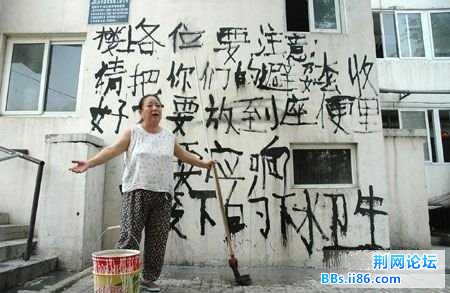 楼各位要注意
请把你们的避孕套收
好 要放到座便里
要应响
下的 卫生
荆网论坛
BBs.ii86.com